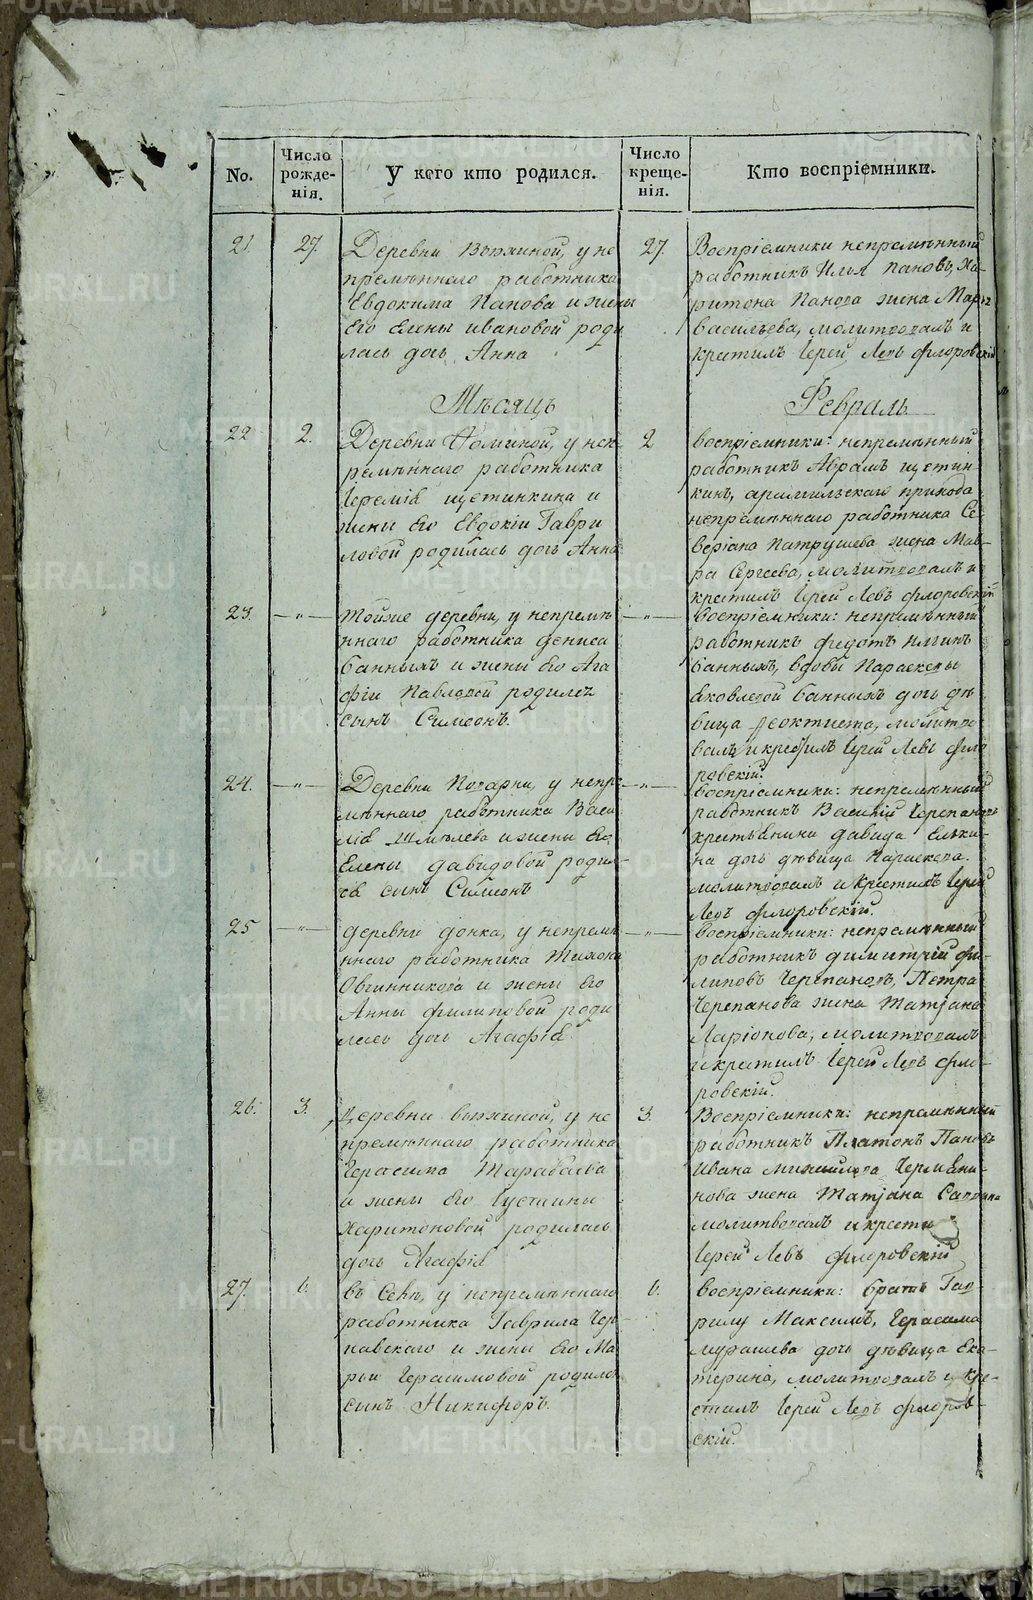 No.
Число рожденія.
У кого кто родился.
Число крещенія.
Кто воспріемники.
21.
27.
Деревни Вьтяиной, у не
премѣннаго работника
Евдокима Панова и жены
Его Елены ивановой роди
лась дочь Анна
27.
Воспріемники непремѣнный
работникъ Илья Пановъ, Ха-
ритона Панова жена Марья
васильева, молитвовалъ и
крестилъ Іерей Левъ флоровскій
Мѣсяцъ
Февраль
22
2.
Деревни Фоминой, у неп
ремѣннаго работника
Іереміи щетинкина и
жены Его Евдокіи Гаври
ловой родилась дочь Анна
2
воспріемники: непремѣнный
работникъ Аврамъ щетин-
кинъ, арамильскаго прихода
непремѣннаго работника Се-
веріана Патрушева жена Мав-
ра Сергеева, молитвовалъ и
крестилъ Іерей Левъ флоровскій
23.
—„—
Тойже деревни, у непремѣ
ннаго работника дениса
банныхъ и жены Его Ага
фіи Павловой родился
сынъ Симеонъ.
—„—
воспріемники: непремѣнный
работникъ федотъ
банныхъ, вдовы Параскевы
Яковлевой банныхъ дочь дѣ
вица Ѳеоктиста, молитво-
валъ и крестилъ Іерей Левъ фло
ровскій.
24.
—„—
Деревни у непре
мѣннаго работника Васи
лія Шмѣлева и жены Его
Елены давидовой родил-
ся сынъ Симеонъ
—„—
воспріемники: непремѣнный
работникъ Василій Черепановъ
крестьянина давида Ельки-
на дочь дѣвица Параскева.
молитвовалъ и Крестилъ Іерей
Левъ флоровскій.
25
—„—
деревни фомка, у непремѣ
ннаго работника Тихона
Овчинникова и жены Его
Анны филиповой роди
лась дочь Агафія
—„—
воспріемники: непремѣнный
работникъ димитрій фи-
липовъ Черепановъ, Петра
Черепанова жена Татіана
Ларіонова, молитвовалъ
и крестилъ Іерей Левъ фло-
ровскій.
26.
3.
Деревни вьтяиной, у не
премѣннаго работника
Герасима Тарабаева
и жены Его Іустины
Харитоновой родилась
дочь Агафія
3.
Воспріемники: непремѣнный
работникъ Платонъ Пановъ
Ивана Михайлова
нова жена Татіана
молитвовалъ и крести
Іерей Левъ флоровскій
27.
6.
въ Селѣ, у непремѣннаго
работника Гаврила Чер
навскаго и жены Его Ма
рьи Герасимовой родился
сынъ Никифоръ.
6.
воспріемники: братъ Гав-
рилу Максимъ, Герасима
мурашева дочь дѣвица Ека-
терина, молитвовалъ и кре-
стилъ Іерей Левъ флоров-
скій.
METRIKI.GASO-URAL.RU